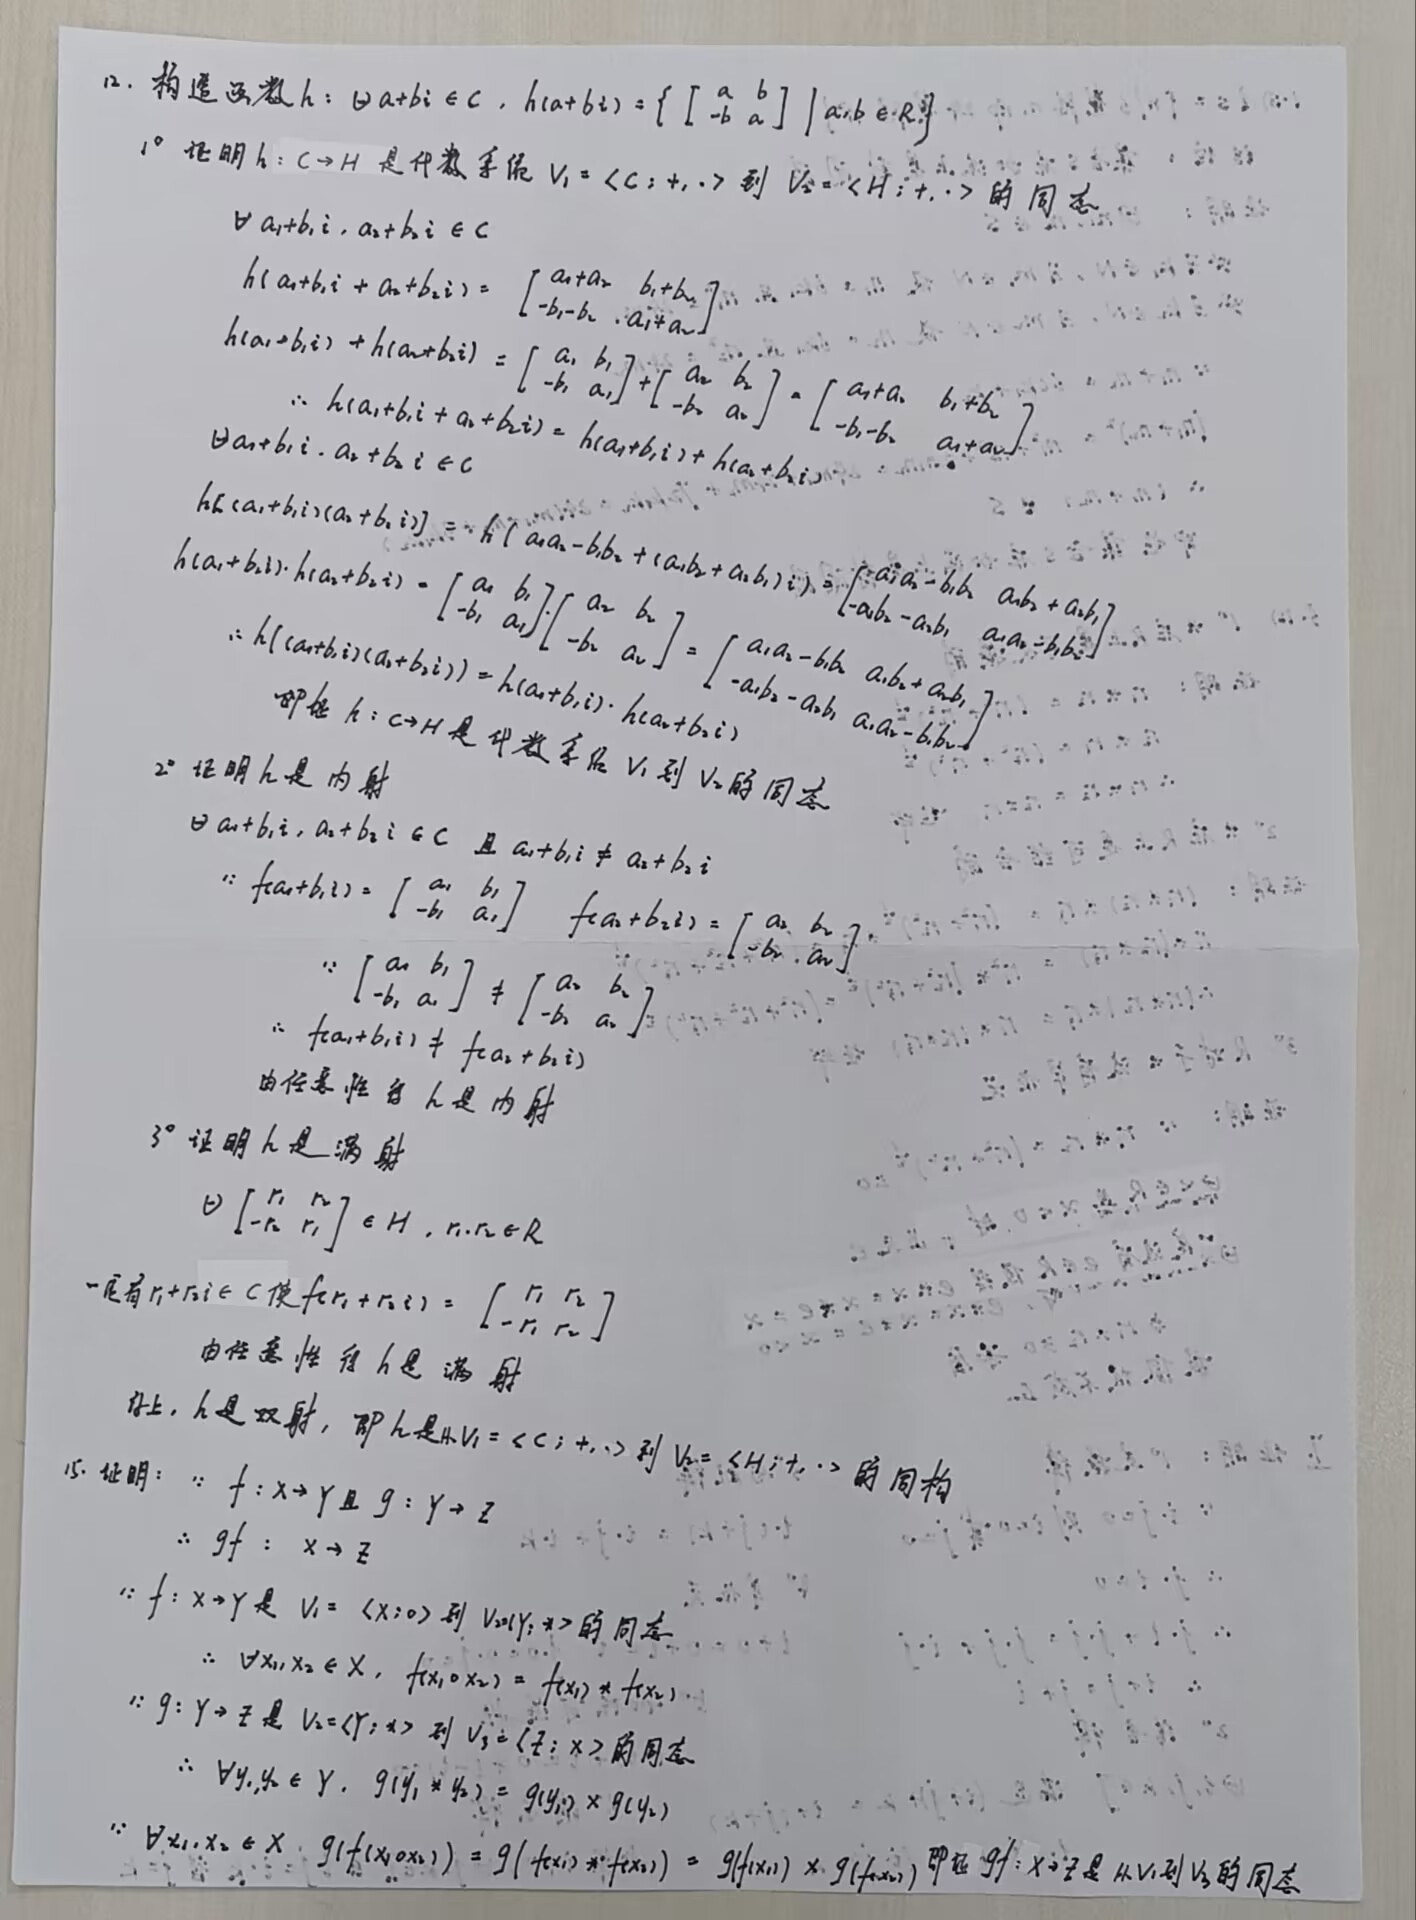 12. 构造函数h: ∀ a+bi ∈ C, h(a+bi) = { [ a b -b a ] | a,b ∈ R }
1° 证明 h: C→H 是代数系统 V₁ = <C; +, ·> 到 V₂ = <H; +, ·> 的同态
∀ a₁+b₁i, a₂+b₂i ∈ C
h(a₁+b₁i + a₂+b₂i) = [ a₁+a₂ b₁+b₂ -b₁-b₂ a₁+a₂ ]
h(a₁+b₁i) + h(a₂+b₂i) = [ a₁ b₁ -b₁ a₁ ] + [ a₂ b₂ -b₂ a₂ ] = [ a₁+a₂ b₁+b₂ -b₁-b₂ a₁+a₂ ]
∴ h(a₁+b₁i + a₂+b₂i) = h(a₁+b₁i) + h(a₂+b₂i)
∀ a₁+b₁i, a₂+b₂i ∈ C
h[(a₁+b₁i)(a₂+b₂i)] = h(a₁a₂-b₁b₂ + (a₁b₂+a₂b₁)i) = [ a₁a₂-b₁b₂ a₁b₂+a₂b₁ -a₁b₂-a₂b₁ a₁a₂-b₁b₂ ]
h(a₁+b₁i)·h(a₂+b₂i) = [ a₁ b₁ -b₁ a₁ ]·[ a₂ b₂ -b₂ a₂ ] = [ a₁a₂-b₁b₂ a₁b₂+a₂b₁ -a₁b₂-a₂b₁ a₁a₂-b₁b₂ ]
∴ h((a₁+b₁i)(a₂+b₂i)) = h(a₁+b₁i)·h(a₂+b₂i)
即证 h: C→H 是代数系统 V₁ 到 V₂ 的同态
2° 证明 h 是内射
∀ a₁+b₁i, a₂+b₂i ∈ C 且 a₁+b₁i ≠ a₂+b₂i
∵ f(a₁+b₁i) = [ a₁ b₁ -b₁ a₁ ] f(a₂+b₂i) = [ a₂ b₂ -b₂ a₂ ]
∵ [ a₁ b₁ -b₁ a₁ ] ≠ [ a₂ b₂ -b₂ a₂ ]
∴ f(a₁+b₁i) ≠ f(a₂+b₂i)
由任意性得 h 是内射
3° 证明 h 是满射
∀ [ r₁ r₂ -r₂ r₁ ] ∈ H, r₁, r₂ ∈ R
一定有 r₁+r₂i ∈ C 使 f(r₁+r₂i) = [ r₁ r₂ -r₁ r₂ ]
由任意性得 h 是满射
综上, h 是双射, 即 h 是从 V₁ = <C; +, ·> 到 V₂ = <H; +, ·> 的同构
15. 证明: ∵ f: X→Y 且 g: Y→Z
∴ gf: X→Z
∵ f: X→Y 是 V₁ = <X; ∘> 到 V₂=<Y; *> 的同态
∴ ∀x₁,x₂ ∈ X, f(x₁∘x₂) = f(x₁) * f(x₂)
∵ g: Y→Z 是 V₂=<Y; *> 到 V₃=<Z; ×> 的同态
∴ ∀y₁,y₂ ∈ Y, g(y₁*y₂) = g(y₁) × g(y₂)
∵ ∀x₁,x₂ ∈ X g(f(x₁∘x₂)) = g(f(x₁)*f(x₂)) = g(f(x₁)) × g(f(x₂)) 即证 gf: X→Z 是从V₁到V₃的同态